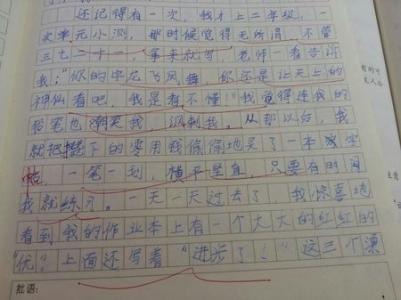 还记得有一次，我才上二年级，一
次单元小测，那时候觉得无所谓，不管
三七二十一，拿来就写，老师一看告诉
我：“你的字龙飞凤舞，你还是让天上的
神仙看吧，我是看不懂！”我觉得连我的
铅笔也嘲笑我，讽刺我。从那以后，我
就把攒下的零用钱偷偷地买了一本字
帖，一笔一划，横平竖直，只要有时间
我就练习。一天一天过去了，我惊喜地
看到我的作业本上有一个大大的红红的
“优”，上面还写着“进步了！”这三个漂
批语：